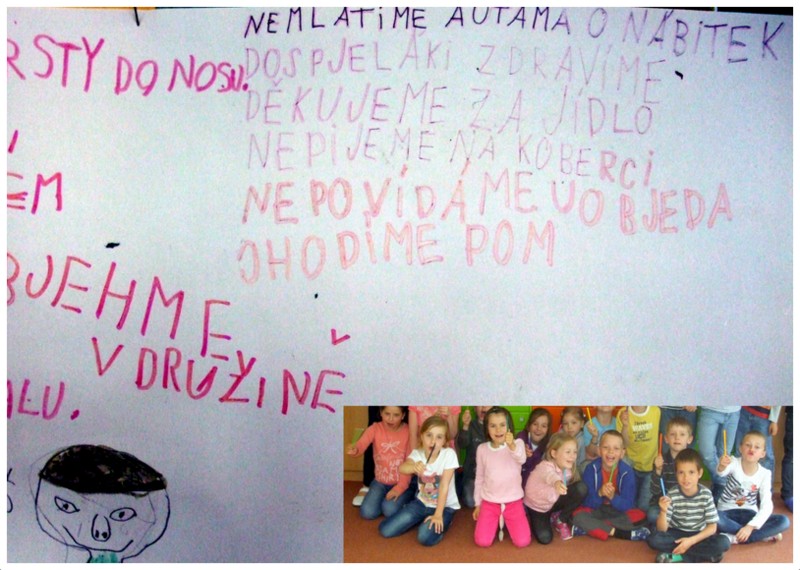 NEMLATÍME AUTAMA O NÁBITEK
DOSPJELÁKI ZDRAVÍME
DĚKUJEME ZA JÍDLO
NEPIJEME NA KOBERCI
NEPOVÍDÁME UO BJEDA
CHODÍME POM
RSTY DO NOSU.
EM
BJEHME
V DRUŽINĚ
ALU.